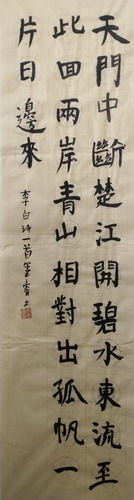 天門中斷楚江開碧水東流至
此回兩岸青山相對出孤帆一
片日邊來
李白詩一首